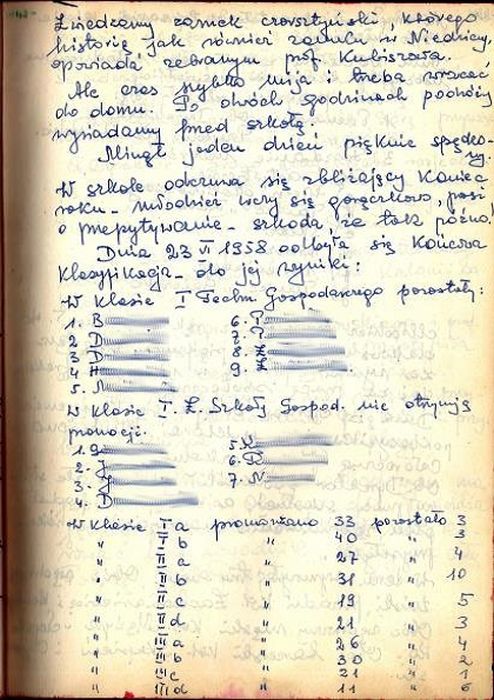 Zwiedzamy zamek czorsztyński, którego
historię jak również zamku w Niedzicy,
opowiada zebranym prof. Kubiszata.
Ale czas szybko mija i trzeba wracać
do domu. Po dwóch godzinach podróży
wysiadamy przed szkołą.
Minął jeden dzień pięknie spędzo-
ny.
W szkole odczuwa się zbliżający koniec
roku - młodzież uczy się gorączkowo, prosi
o przepytywanie - szkoda, że tak późno!
Dnia 23 VI 1958 odbyła się końcowa
klasyfikacja - oto jej wyniki:
W klasie I Techn. Gospodarczego pozostały:
1. B
2 D
3 D
4 H
5. N
6. P.
7. P.
8. Z
9. Z
W klasie I. Z. Szkoły Gospod. nie otrzymują
promocji:
1. G
2. J
3. J
4. D
5. K
6. R
7. N.
W klasie I a promowano 33 pozostało 3
" I b " 40 " 3
" II a " 27 " 4
" II b " 31 " 10
" II c " 19 " 5
" II d " 21 " 3
" III a " 26 " 4
" III b " 30 " 2
" III c " 21 " 1
" III d " 11 " 6